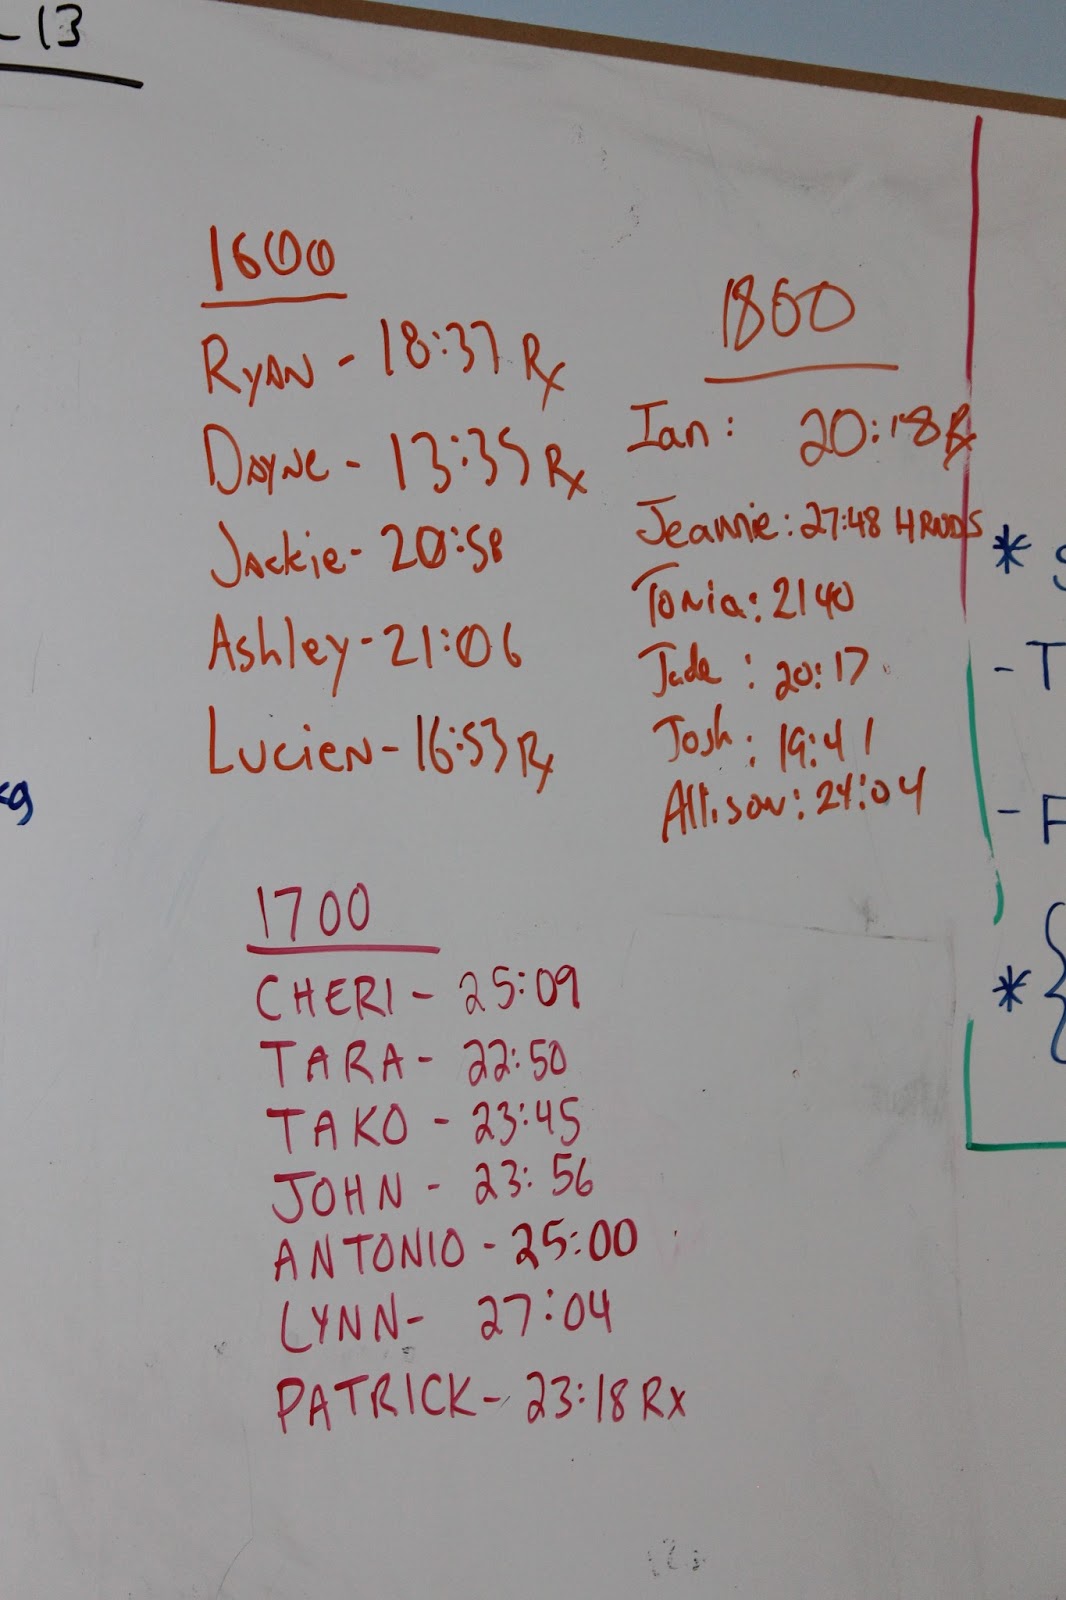 -13
1600
RYAN - 18:37 Rx
DAYNE - 13:35 Rx
JACKIE - 20:58
Ashley - 21:06
LUCIEN - 16:53 Rx
1800
Ian: 20:18 Rx
Jeannie: 27:48 4 RNDS
Tonia: 2140
Jade: 20:17
Josh: 19:41
Allison: 24:04
1700
CHERI - 25:09
TARA - 22:50
TAKO - 23:45
JOHN - 23:56
ANTONIO - 25:00
LYNN - 27:04
PATRICK - 23:18 Rx
*
- T
- F
* {